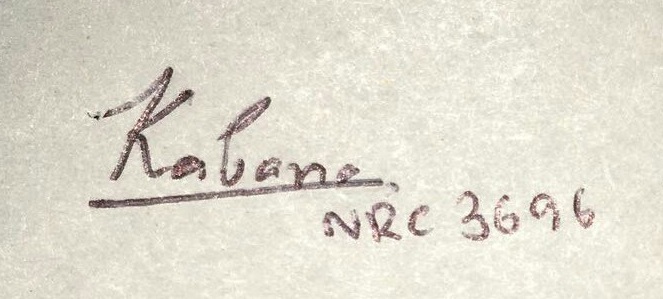 Kabana
NRC 3696